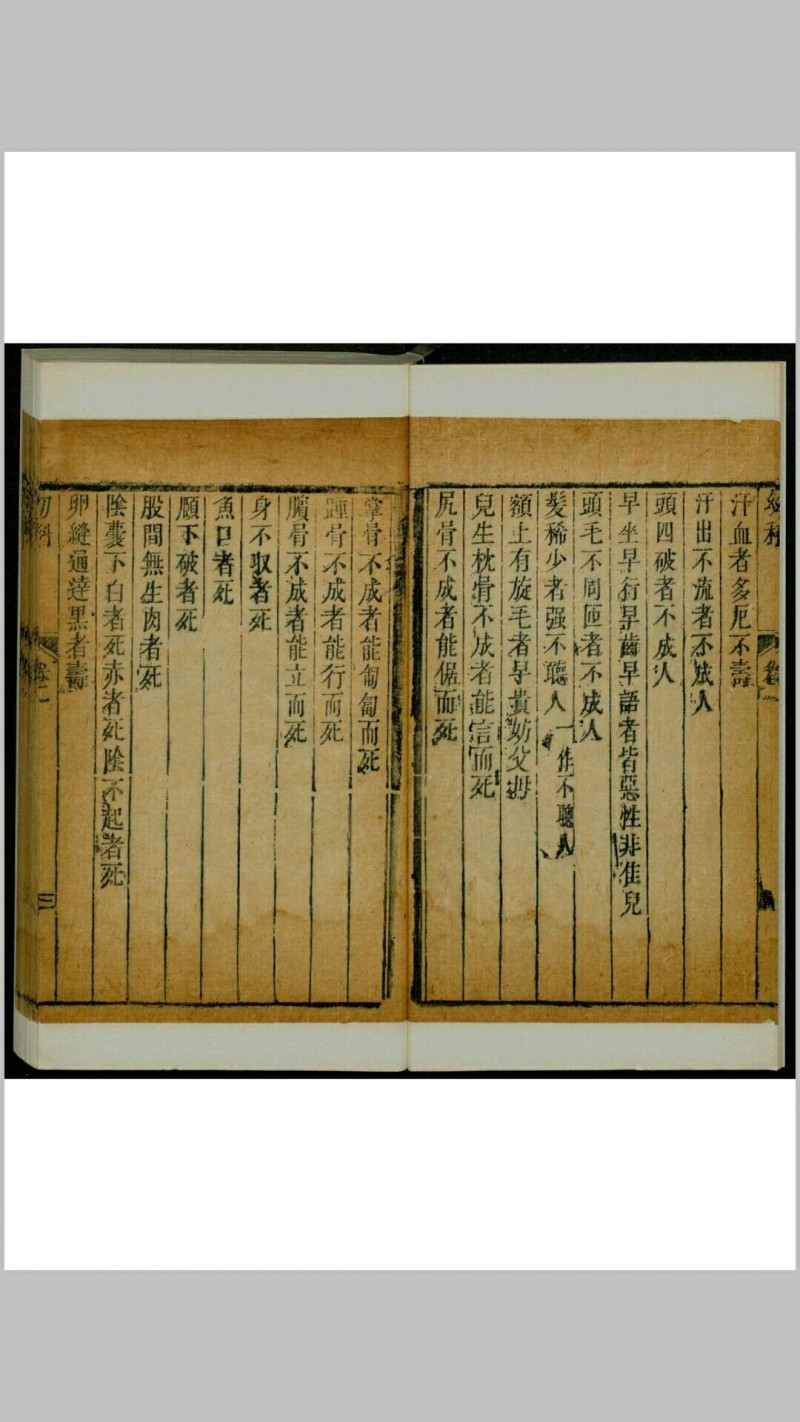 幼科 卷二
汗血者多厄不壽
汗出不流者不成人
頭四破者不成人
早坐早行早齒早語者皆惡性非佳兒
頭毛不周匝者不成人
髮稀少者强不聽人一作不聰人
額上有旋毛者早貴妨父母
兒生枕骨不成者能言而死
尻骨不成者能倨而死
掌骨不成者能匍匐而死
踵骨不成者能行而死
臏骨不成者能立而死
身不収者死
魚口者死
頤下破者死
股間無生肉者死
陰囊下白者死赤者死陰不起者死
卵縫通達黑者壽
幼科 卷二 三